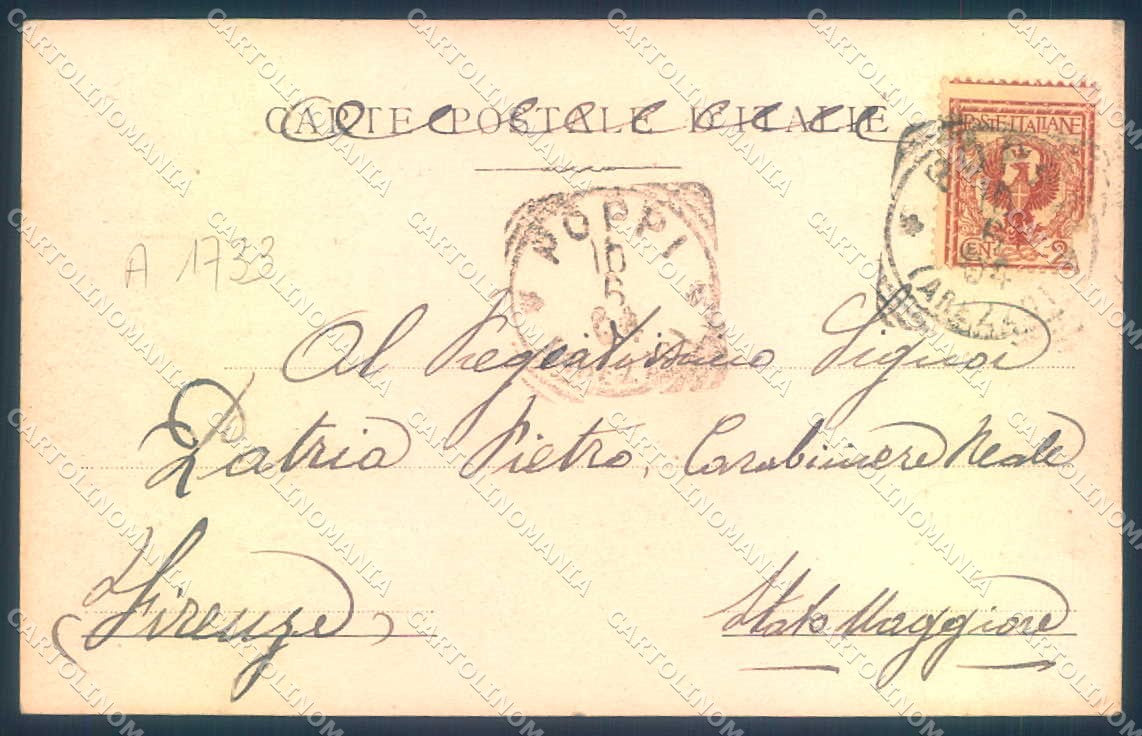 CARTE POSTALE D'ITALIE
POSTE ITALIANE
CENT. 2
POPPI
10
5
04
(AREZZO)
A 1733
Al Pregiatissimo Signor
Latria Pietro, Carabiniere Reale
(Firenze)
Stato Maggiore
CARTOLINOMANIA